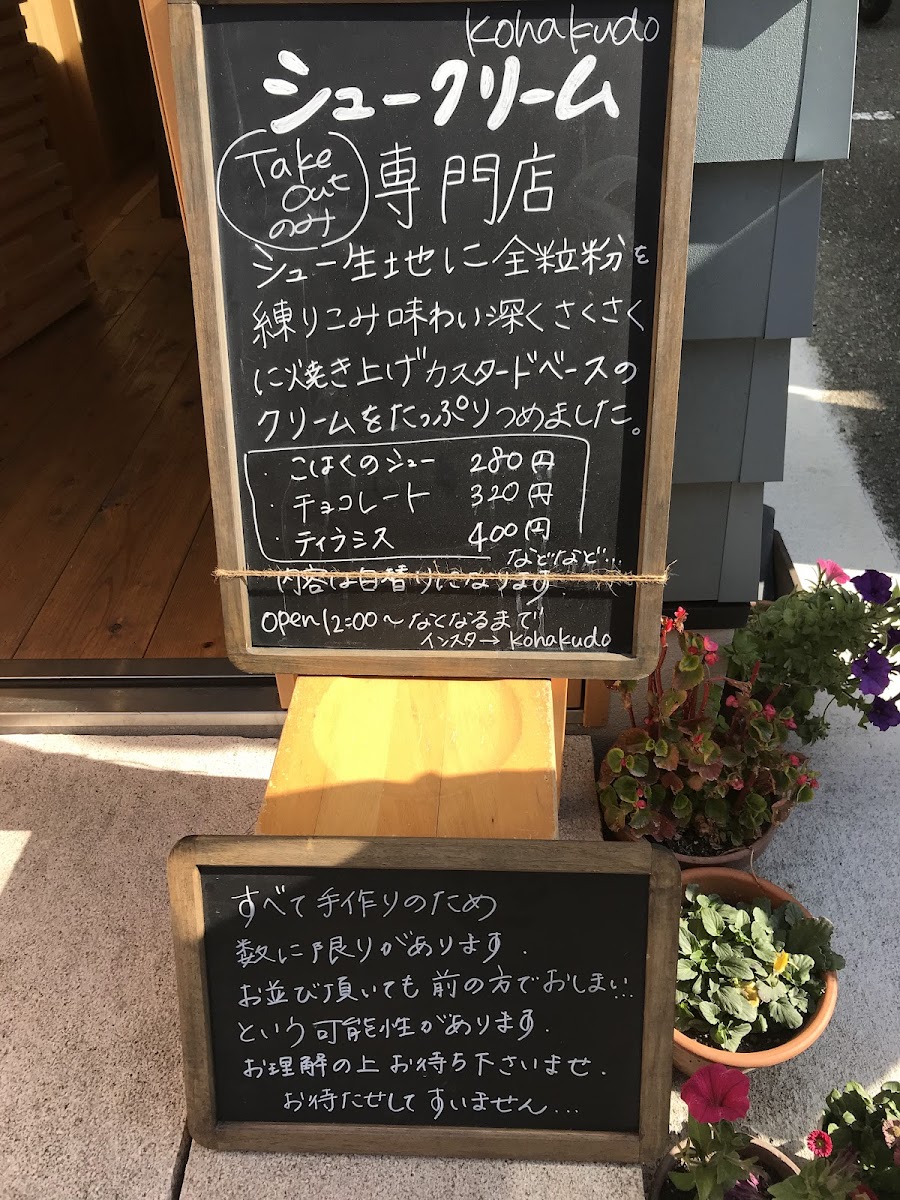 Kohakudo
シュークリーム
Take
Out
のみ
専門店
シュー生地に全粒粉を
練りこみ味わい深くさくさく
に焼き上げカスタードベースの
クリームをたっぷりつめました。
・こはくのシュー 280円
・チョコレート 320円
・ティラミス 400円
などなど…
内容は日替りになります
open 12:00〜なくなるまで
インスタ→ kohakudo
すべて手作りのため
数に限りがあります.
お並び頂いても前の方でおしまい…
という可能性があります.
お理解の上お待ち下さいませ.
お待たせしてすいません…